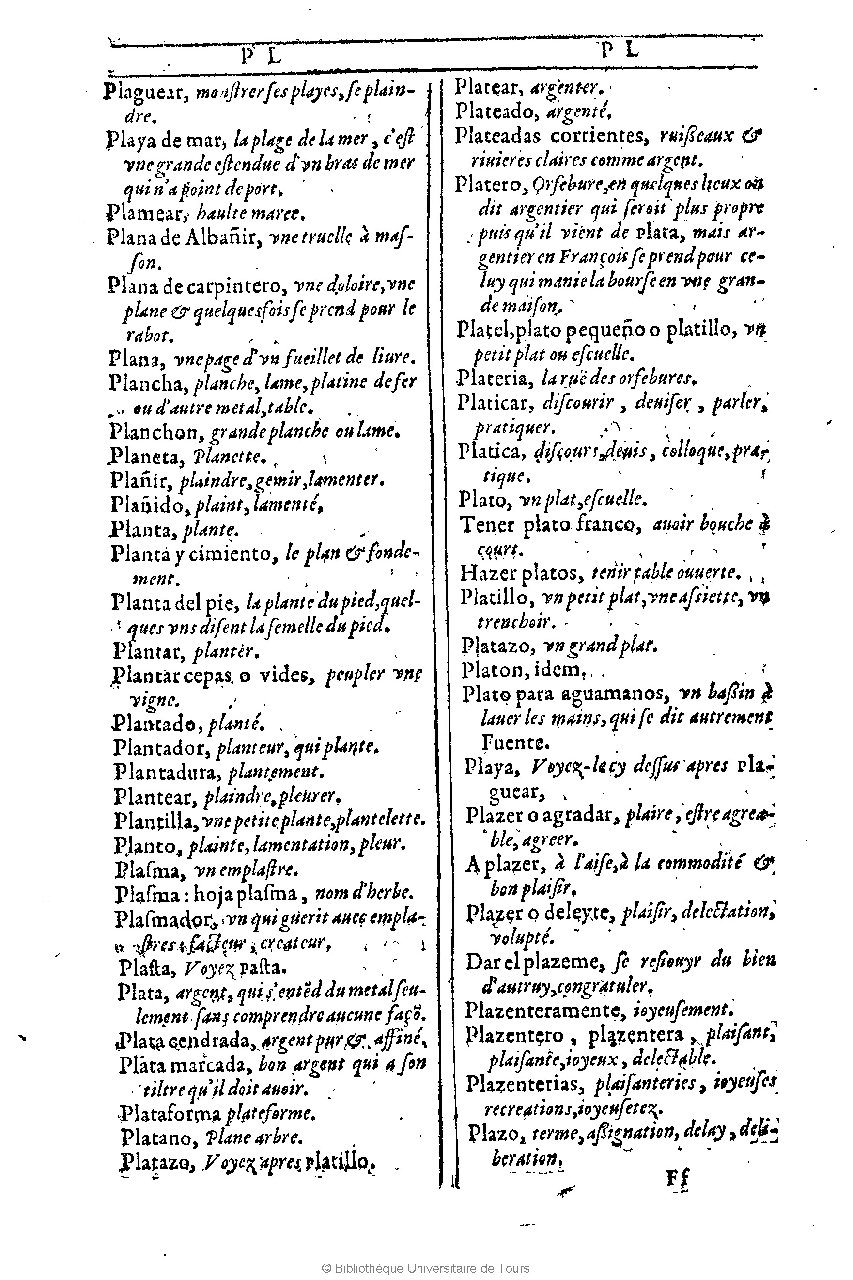 P L
Plaguear, monſtrer ſes playes, ſe plain-
dre.
Playa de mar, la plage de la mer, c'eſt
vne grande eſtendue d'vn bras de mer
qui n'a point de port.
Plamear, haulte maree.
Plana de Albañir, vne truelle à maſ-
ſon.
Plana de carpintero, vne doloire, vne
plane & quelquesfois ſe prend pour le
rabot.
Plana, vne page d'vn fueillet de liure.
Plancha, planche, lame, platine de fer
ou d'autre metal, table.
Planchon, grande planche ou lame.
Planeta, Planette.
Plañir, plaindre, gemir, lamenter.
Plañido, plaint, lamenté,
Planta, plante.
Planta y cimiento, le plan & fonde-
ment.
Planta del pie, la plante du pied, quel-
ques vns diſent la femelle du pied.
Plantar, planter.
Plantar cepas o vides, peupler vne
vigne.
Plantado, planté.
Plantador, planteur, qui plante.
Plantadura, plantement.
Plantear, plaindre, pleurer.
Plantilla, vne petite plante, plantelette.
Planto, plainte, lamentation, pleur.
Plaſma, vn emplaſtre.
Plaſma: hoja plaſma, nom d'herbe.
Plaſmador, vn qui guerit auec empla-
ſtres, facteur, createur,
Plaſta, Voyez Paſta.
Plata, argent, qui s'entẽd du metal ſeu-
lement ſans comprendre aucune façõ.
Plata cendrada, argent pur & affiné,
Plata marcada, bon argent qui a ſon
tiltre qu'il doit auoir.
Plataforma plateforme.
Platano, Plane arbre.
Platazo, Voyez apres Platillo.
P L
Platear, argenter.
Plateado, argenté.
Plateadas corrientes, ruißeaux &
riuieres claires comme argent.
Platero, Orfebure, en quelques lieux on
dit argentier qui ſeroit plus propre
puis qu'il vient de Plata, mais ar-
gentier en François ſe prend pour ce-
luy qui manie la bourſe en vne gran-
de maiſon.
Platel, plato pequeño o platillo, vn
petit plat ou eſcuelle.
Plateria, la ruë des orfebures.
Platicar, diſcourir, deuiſer, parler,
pratiquer.
Platica, diſcours, deuis, colloque, pra-
tique.
Plato, vn plat, eſcuelle.
Tener plato franco, auoir bouche à
court.
Hazer platos, tenir table ouuerte.
Platillo, vn petit plat, vne aſsiette, vn
trenchoir.
Platazo, vn grand plat.
Platon, idem.
Plato para aguamanos, vn baßin à
lauer les mains, qui ſe dit autrement
Fuente.
Playa, Voyez-le cy deſſus apres Pla-
guear,
Plazer o agradar, plaire, eſtre agrea-
ble, agreer.
A plazer, à l'aiſe, à la commodité &
bon plaiſir.
Plazer o deleyte, plaiſir, delectation,
volupté.
Dar el plazeme, ſe reſiouyr du bien
d'autruy, congratuler.
Plazenteramente, ioyeuſement.
Plazentero, plazentera, plaiſant,
plaiſante, ioyeux, delectable.
Plazenterias, plaiſanteries, ioyeuſes
recreations, ioyeuſetez.
Plazo, terme, aßignation, delay, deli-
beration.
Ff
© Bibliothèque Universitaire de Tours